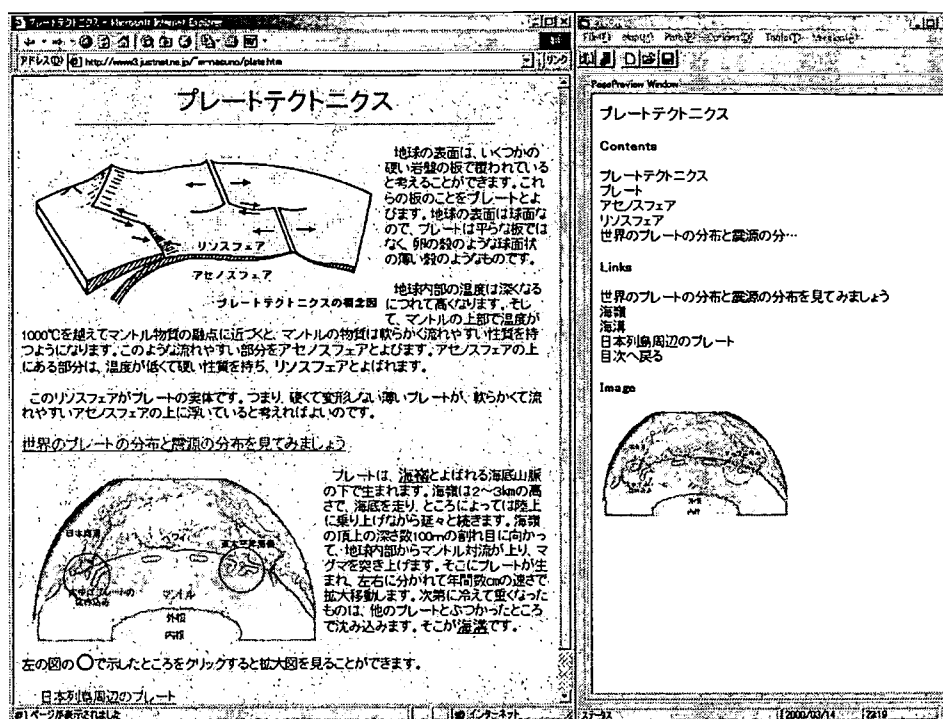 プレートテクトニクス - Microsoft Internet Explorer
アドレス(D)
リンク
プレートテクトニクス
地球の表面は、いくつかの
硬い岩盤の板で覆われている
と考えることができます。これ
らの板のことをプレートとよ
びます。地球の表面は球面な
ので、プレートは平らな板では
なく、卵の殻のような球面状
の薄い殻のようなものです。
リソスフェア
アセノスフェア
プレートテクトニクスの概念図
地球内部の温度は深くなる
につれて高くなります。そし
て、マントルの上部で温度が
1000℃を越えてマントル物質の融点に近づくと、マントルの物質は軟らかく流れやすい性質を持
つようになります。このような流れやすい部分をアセノスフェアとよびます。アセノスフェアの上
にある部分は、温度が低くて硬い性質を持ち、リソスフェアとよばれます。
このリソスフェアがプレートの実体です。つまり、硬くて変形しない薄いプレートが、軟らかくて流
れやすいアセノスフェアの上に浮いていると考えればよいのです。
世界のプレートの分布と震源の分布を見てみましょう
プレートは、海嶺とよばれる海底山脈
の下で生まれます。海嶺は2～3kmの高
さで、海底を走り、ところによっては陸上
に乗り上げながら延々と続きます。海嶺
の頂上の深さ数100mの割れ目に向かっ
て、地球内部からマントル対流が上り、マ
グマを突き上げます。そこにプレートが生
まれ、左右に分かれて年間数cmの速さで
拡大移動します。次第に冷えて重くなった
ものは、他のプレートとぶつかったところ
で沈み込みます。そこが海溝です。
日本海溝
ハワイ
東太平洋海嶺
マントル
外核
内核
左の図の○で示したところをクリックすると拡大図を見ることができます。
日本列島周辺のプレート
ページが表示されました
インターネット
PagePreview Window
プレートテクトニクス
Contents
プレートテクトニクス
プレート
アセノスフェア
リソスフェア
世界のプレートの分布と震源の分…
Links
世界のプレートの分布と震源の分布を見てみましょう
海嶺
海溝
日本列島周辺のプレート
目次へ戻る
Image
外核
内核
ステータス
2000/03/14